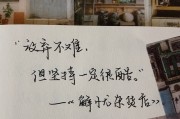 “放弃不难，
但坚持一定很酷。”
——《解忧杂货店》